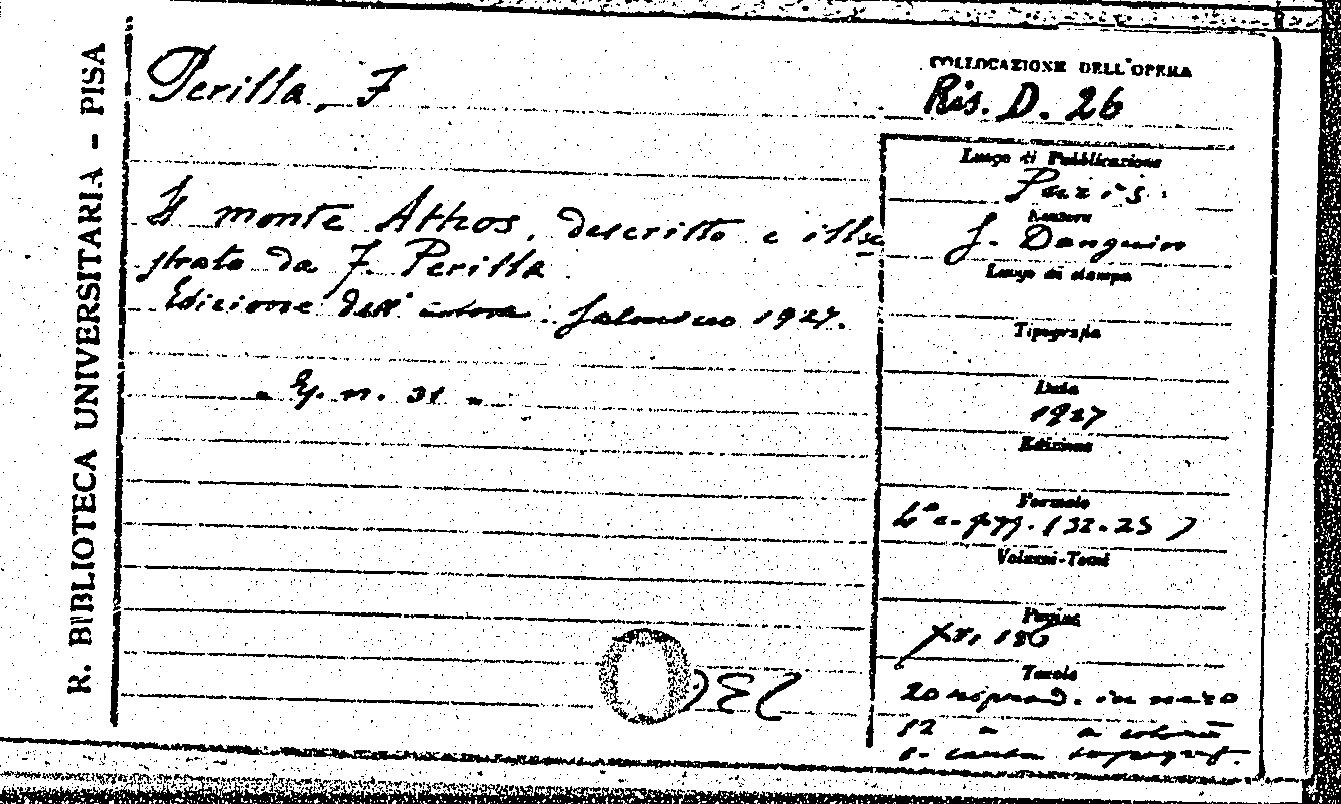 R. BIBLIOTECA UNIVERSITARIA - PISA
Perilla, F
COLLOCAZIONE DELL'OPERA
Ris. D. 26
Il monte Athos, descritto e illu
strato da F. Perilla
Edizione dell' autore. 1927.
Ej. n. 31
Luogo di Pubblicazione
Paris
J. Danguin
Luogo di stampa
Tipografia
Data
1927
Edizione
Formato
(32-25)
Volumi-Tomi
Pagine
186
Tavole
20 riprod. in nero
12 " a colori
carta topograf.
DEC